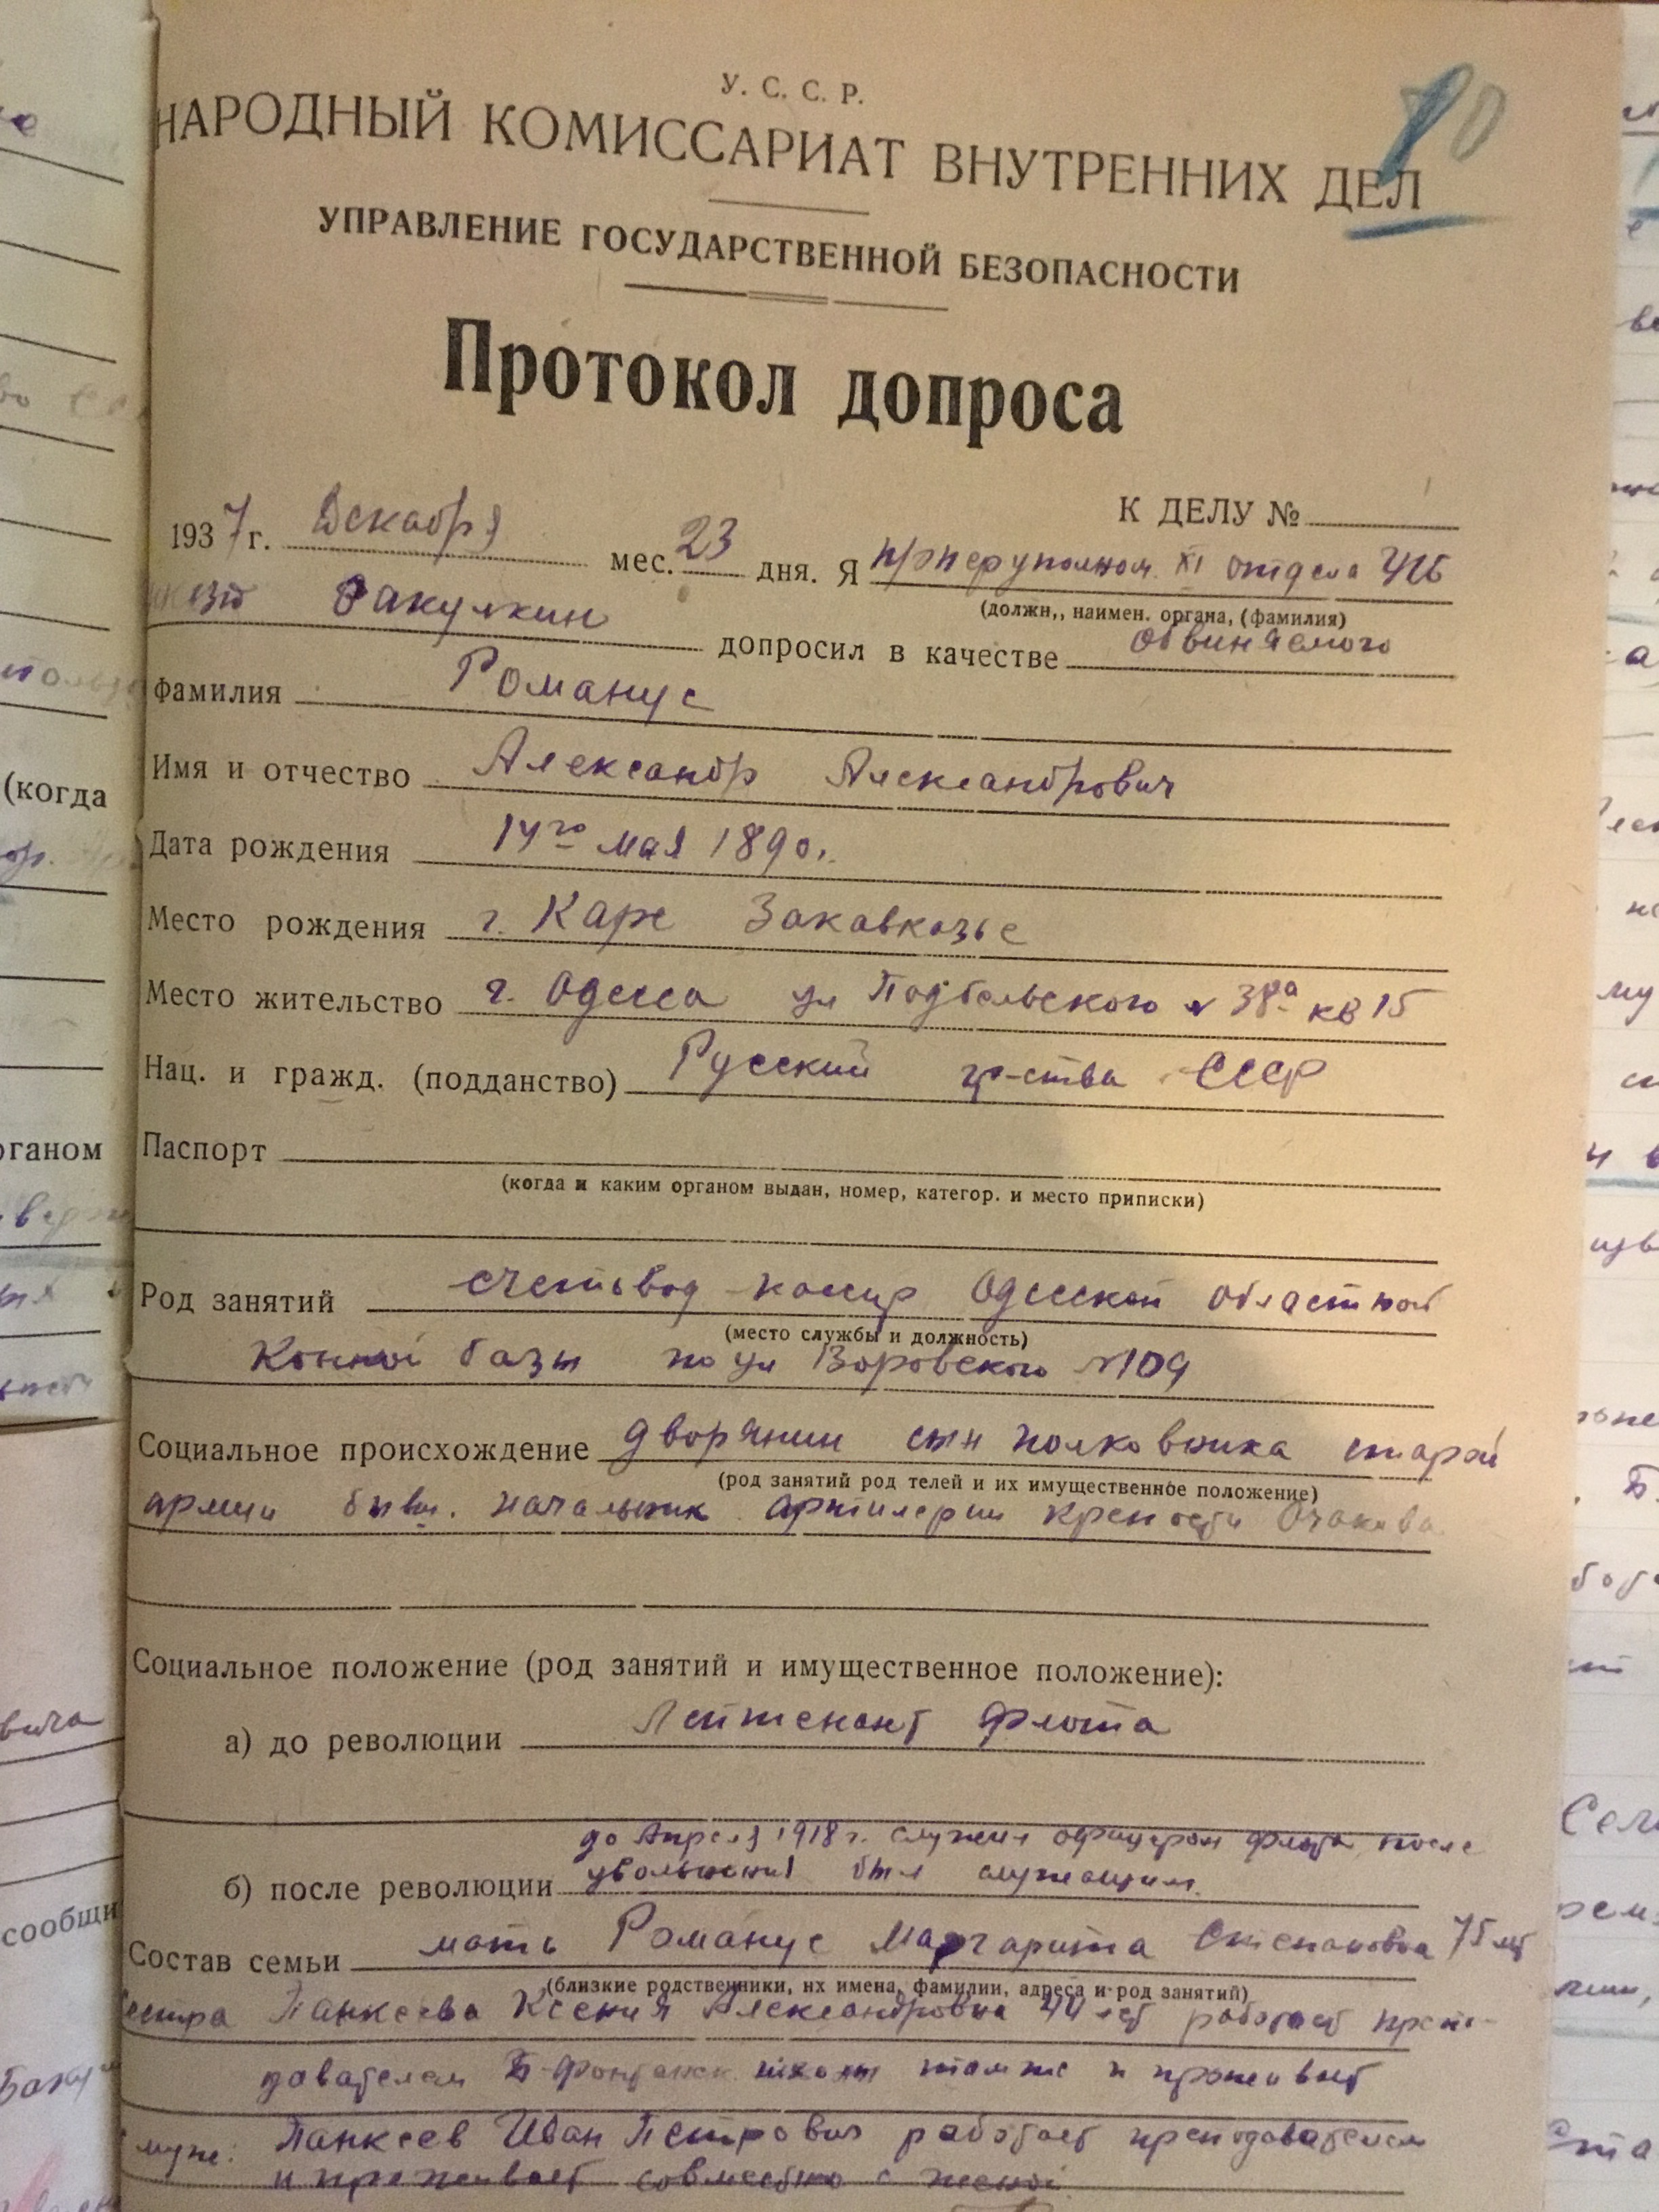 У. С. С. Р.
НАРОДНЫЙ КОМИССАРИАТ ВНУТРЕННИХ ДЕЛ
УПРАВЛЕНИЕ ГОСУДАРСТВЕННОЙ БЕЗОПАСНОСТИ
Протокол допроса
К ДЕЛУ №
1937 г. Декабря мес. 23 дня. Я XI отдела УГБ
(должн,, наимен. органа, (фамилия)
допросил в качестве обвиняемого
Фамилия Романус
Имя и отчество Александр Александрович
Дата рождения 14го мая 1890г.
Место рождения г. Карс Закавказье
Место жительство г. Одесса ул Подбельского № 38а кв 15
Нац. и гражд. (подданство) Русский гр-ства СССР
Паспорт
(когда и каким органом выдан, номер, категор. и место приписки)
Род занятий счетовод кассир Одесской областной
(место службы и должность)
Конной базы по ул Воровского №109
Социальное происхождение дворянин сын полковника старой
(род занятий род телей и их имущественное положение)
армии бывш. начальник артилерии крепости Очакова
Социальное положение (род занятий и имущественное положение):
а) до революции Лейтенант флота
до Апреля 1918 г. служил офицером флота после
б) после революции увольнения был служащим.
Состав семьи мать Романус Маргарита Степановна 75 лет
(близкие родственники, их имена, фамилии, адреса и род занятий)
сестра Панкеева Ксения Александровна 44 лет работает препо-
давателем Б-Фонтанск. школы там же и проживает
муж: Панкеев Иван Петрович работает преподавателем
и проживает совместно с женой